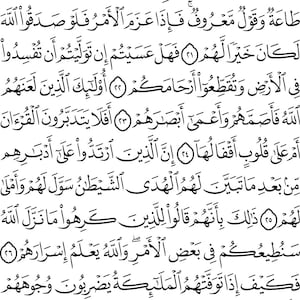 طَاعَةٌ وَقَوْلٌ مَّعْرُوفٌ ۚ فَإِذَا عَزَمَ ٱلْأَمْرُ فَلَوْ صَدَقُوا۟ ٱللَّهَ
لَكَانَ خَيْرًا لَّهُمْ ٢١ فَهَلْ عَسَيْتُمْ إِن تَوَلَّيْتُمْ أَن تُفْسِدُوا۟
فِى ٱلْأَرْضِ وَتُقَطِّعُوٓا۟ أَرْحَامَكُمْ ٢٢ أُو۟لَـٰٓئِكَ ٱلَّذِينَ لَعَنَهُمُ
ٱللَّهُ فَأَصَمَّهُمْ وَأَعْمَىٰٓ أَبْصَـٰرَهُمْ ٢٣ أَفَلَا يَتَدَبَّرُونَ ٱلْقُرْءَانَ
أَمْ عَلَىٰ قُلُوبٍ أَقْفَالُهَآ ٢٤ إِنَّ ٱلَّذِينَ ٱرْتَدُّوا۟ عَلَىٰٓ أَدْبَـٰرِهِم
مِّنۢ بَعْدِ مَا تَبَيَّنَ لَهُمُ ٱلْهُدَى ٱلشَّيْطَـٰنُ سَوَّلَ لَهُمْ وَأَمْلَىٰ
لَهُمْ ٢٥ ذَٰلِكَ بِأَنَّهُمْ قَالُوا۟ لِلَّذِينَ كَرِهُوا۟ مَا نَزَّلَ ٱللَّهُ
سَنُطِيعُكُمْ فِى بَعْضِ ٱلْأَمْرِ ۖ وَٱللَّهُ يَعْلَمُ إِسْرَارَهُمْ ٢٦
فَكَيْفَ إِذَا تَوَفَّتْهُمُ ٱلْمَلَـٰٓئِكَةُ يَضْرِبُونَ وُجُوهَهُمْ